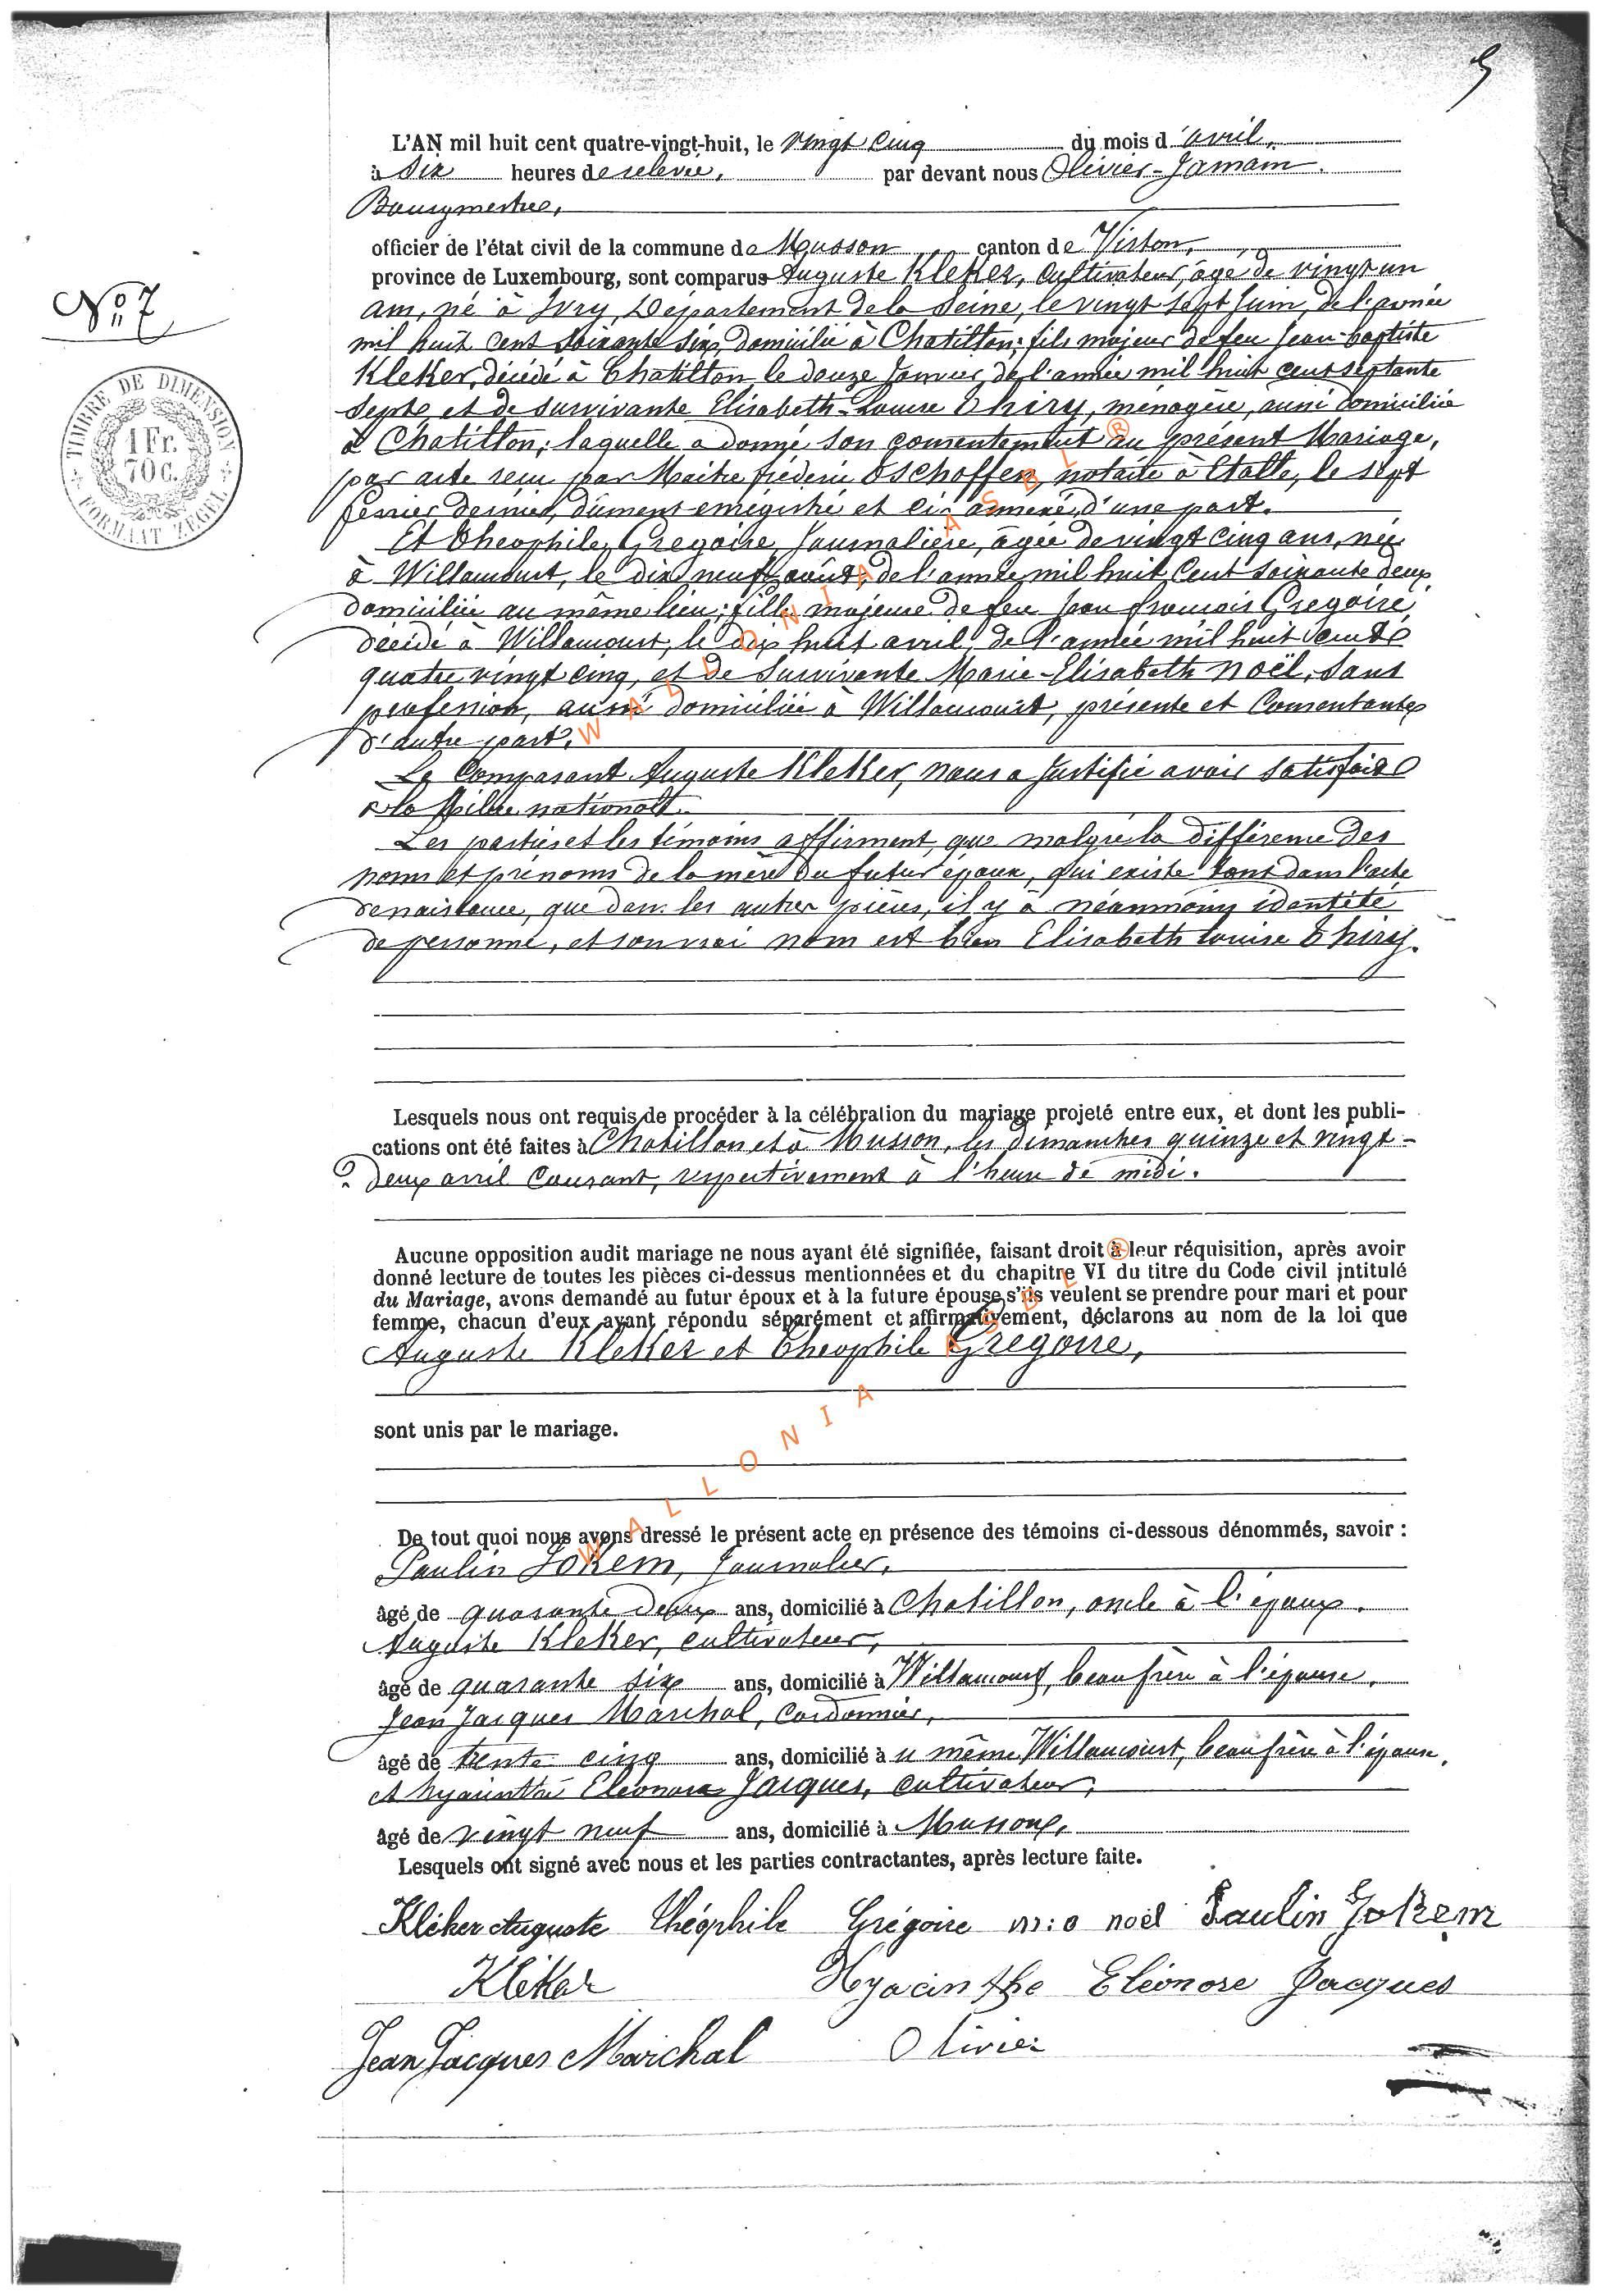 5
L'AN mil huit cent quatre-vingt-huit, le vingt cinq du mois d'avril,
à six heures de relevée, par devant nous Olivier-Jamain.
Bourgmestre,
officier de l'état civil de la commune de Musson canton de Virton,
province de Luxembourg, sont comparus Auguste Kleker, Cultivateur, âgé de vingt un
an, né à Ivry, Département de la Seine, le vingt sept Juin, de l'année
mil huit cent soixante six, domicilié à Chatillon; fils majeur de feu Jean-baptiste
Kleker, décédé à Chatillon le douze Janvier de l'année mil huit cent septante
sept, et de survivante Elisabeth-Louise Thiry, ménagère, aussi domiciliée
à Chatillon; laquelle a donné son consentement au présent Mariage,
par acte reçu par Maitre fréderic Oschoffen, notaire à Etalle, le sept
février dernier, dûment enregistré et ci-annexé, d'une part.
Et Théophile Gregoire, Journalière, âgée de vingt cinq ans, née
à Willancourt, le dix neuf août de l'année mil huit cent soixante deux,
domiciliée au même lieu; fille majeure de feu Jean françois Gregoire,
décédé à Willancourt, le dix huit avril, de l'année mil huit cent
quatre vingt cinq, et de survivante Marie-Elisabeth Noël, sans
profession, aussi domiciliée à Willancourt, présente et Consentante
d'autre part.
Le Comparant Auguste Kleker, nous a justifié avoir satisfait
à la Milice nationale.
Les parties et les témoins affirment, que malgré la différence des
noms et prénoms de la mère du futur époux, qui existe tant dans l'acte
de naissance, que dans les autres pièces, il y a néanmoins identité
de personne, et son vrai nom est bien Elisabeth Louise Thiry.
N° 7
TIMBRE DE DIMENSION
1 Fr.
70 C.
FORMAAT ZEGEL
Lesquels nous ont requis de procéder à la célébration du mariage projeté entre eux, et dont les publi-
cations ont été faites à Chatillon et à Musson, les dimanches quinze et vingt-
deux avril Courant, respectivement à l'heure de midi.
Aucune opposition audit mariage ne nous ayant été signifiée, faisant droit à leur réquisition, après avoir
donné lecture de toutes les pièces ci-dessus mentionnées et du chapitre VI du titre du Code civil intitulé
du Mariage, avons demandé au futur époux et à la future épouse s'ils veulent se prendre pour mari et pour
femme, chacun d'eux ayant répondu séparément et affirmativement, déclarons au nom de la loi que
Auguste Kleker et Théophile Gregoire,
sont unis par le mariage.
De tout quoi nous avons dressé le présent acte en présence des témoins ci-dessous dénommés, savoir :
Paulin Jokem, Journalier,
âgé de quarante deux ans, domicilié à Chatillon, oncle à l'époux.
Auguste Kleker, cultivateur,
âgé de quarante six ans, domicilié à Willancourt, beau frère à l'épouse.
Jean Jacques Marchal, Cordonnier,
âgé de trente cinq ans, domicilié à u même Willancourt, beau frère à l'épouse.
et hyacinthe Eléonore Jacques, cultivateur,
âgé de vingt neuf ans, domicilié à Musson,
Lesquels ont signé avec nous et les parties contractantes, après lecture faite.
Kléker Auguste Théophile Grégoire m: e noël Paulin Jokem
Kléker Hyacinthe Eléonore Jacques
Jean Jacques Marchal Olivier
WALLONIA ASBL ®
WALLONIA ASBL ®